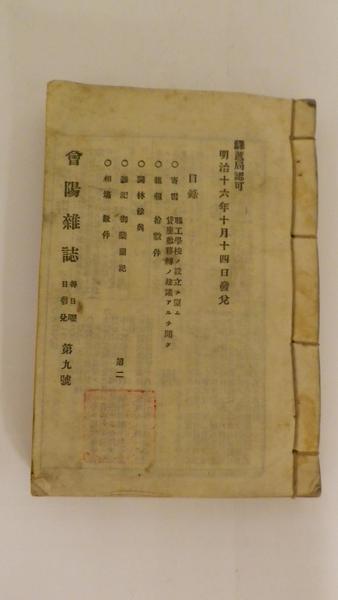 驛遞局認可
明治十六年十月十四日發兌
目錄
○寄書 職工學校ノ設立ヲ望ム
貸座敷移轉ノ建議アルヲ聞ク
○雜報 拾數件
○詞林
○雜記 第二
○相塲 數件
會陽雜誌 毎日曜日發兌 第九號